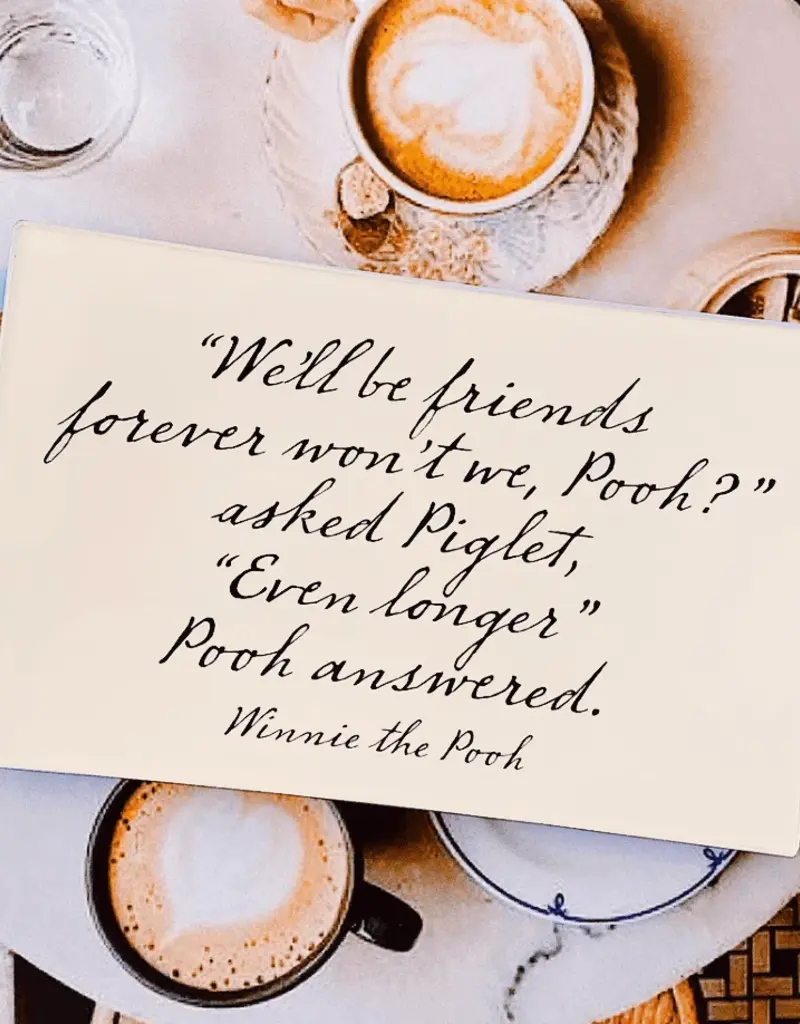 “We’ll be friends
forever won’t we, Pooh?”
asked Piglet,
“Even longer”
Pooh answered.
Winnie the Pooh